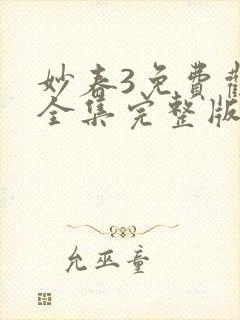 妙春3免費觀
全集完整版
允巫童